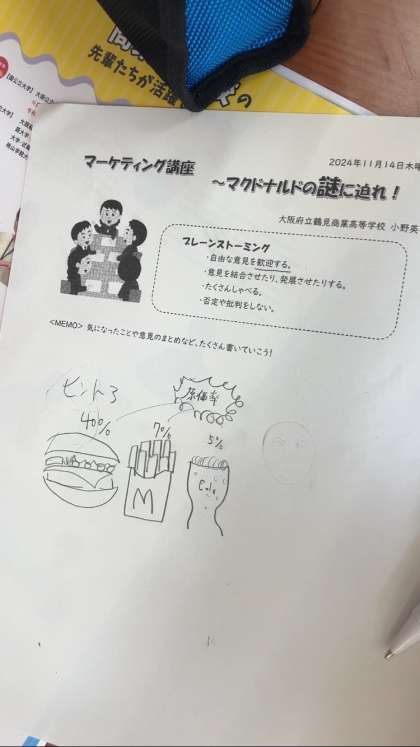 先輩たちが活躍
の
【国公立大学】
マーケティング講座
2024年11月14日木曜
～マクドナルドの謎に迫れ！
大阪府立鶴見商業高等学校 小野英
ブレーンストーミング
・自由な意見を歓迎する。
・意見を結合させたり、発展させたりする。
・たくさんしゃべる。
・否定や批判をしない。
<MEMO> 気になったことや意見のまとめなど、たくさん書いていこう！
ヒント3
原価率
40%
7%
5%
M
Cola